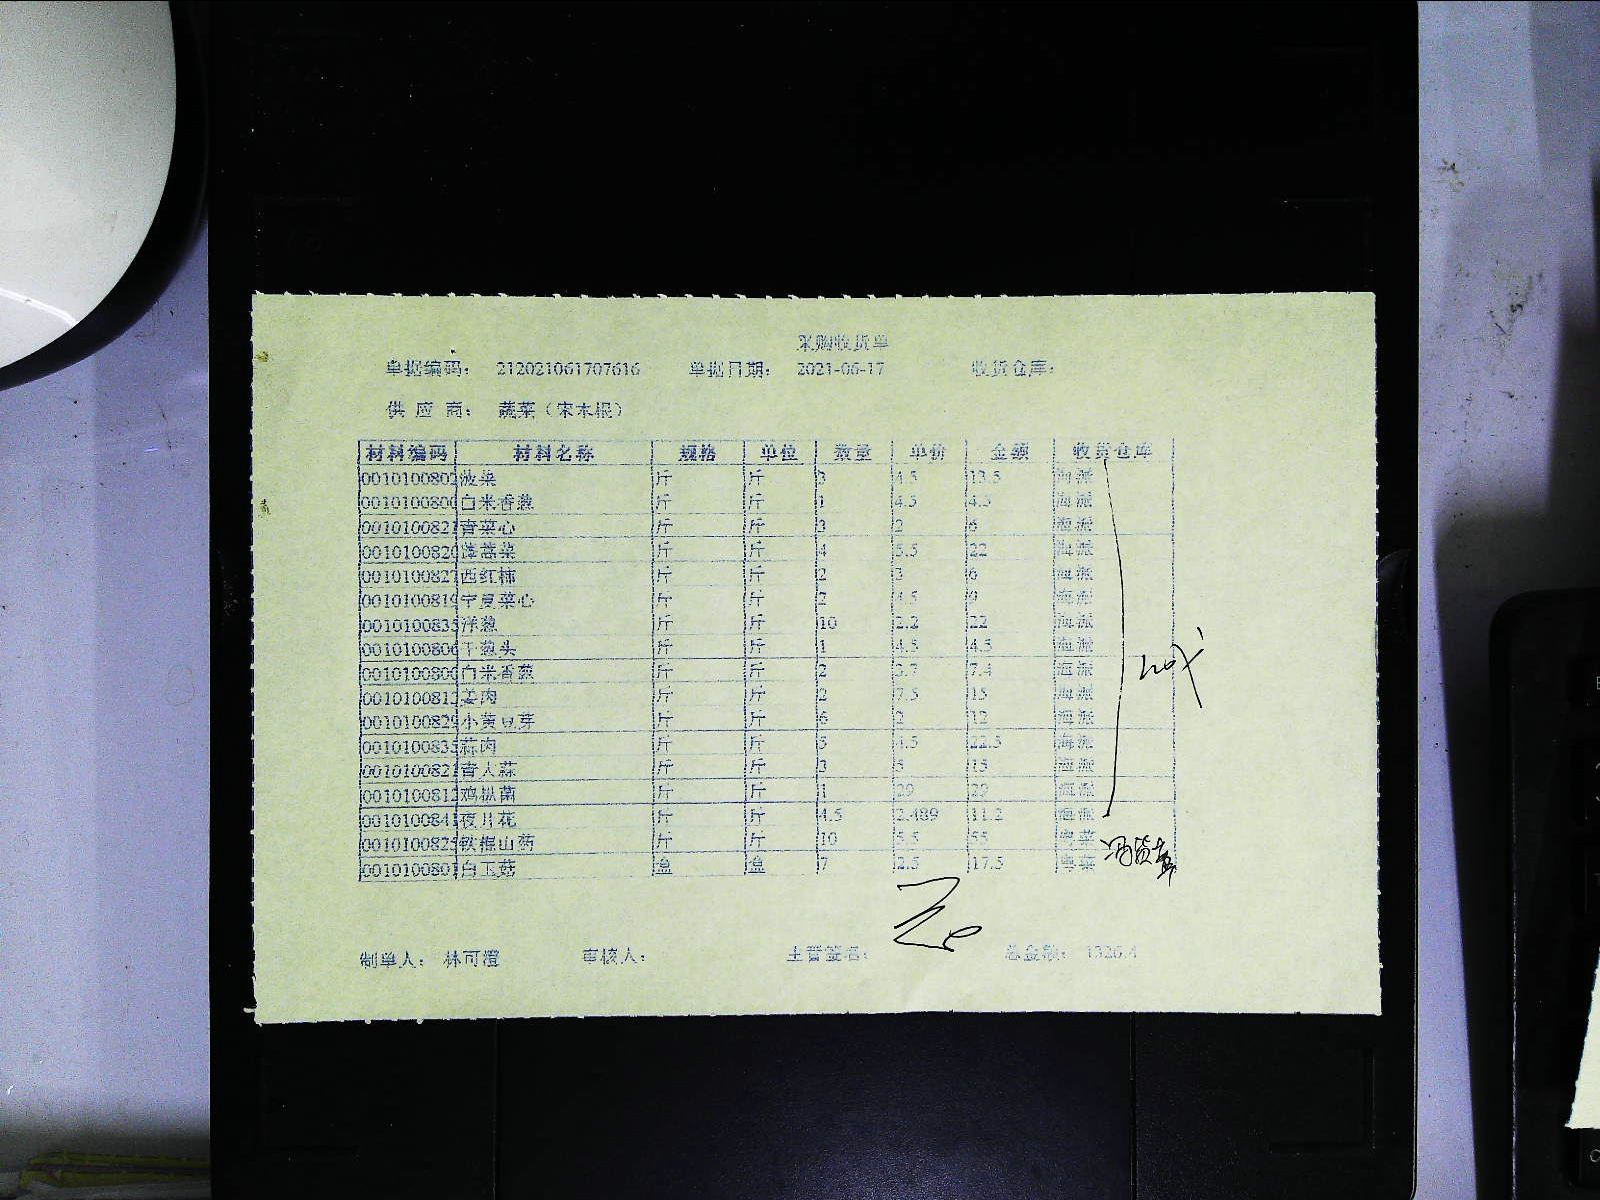 采购收货单
单据编码： 212021061707616 单据日期： 2021-06-17 收货仓库：
供 应 商： 蔬菜（宋木根）
材料编码 材料名称 规格 单位 数量 单价 金额 收货仓库
0010100802 菠菜 斤 斤 3 4.5 13.5 海派
0010100800 白米香葱 斤 斤 1 4.5 4.5 海派
0010100821 青菜心 斤 斤 3 2 6 海派
0010100820 蓬蒿菜 斤 斤 4 5.5 22 海派
0010100827 西红柿 斤 斤 2 3 6 海派
0010100819 宁夏菜心 斤 斤 2 4.5 9 海派
0010100835 洋葱 斤 斤 10 2.2 22 海派
0010100806 干葱头 斤 斤 1 4.5 4.5 海派
0010100800 白米香葱 斤 斤 2 3.7 7.4 海派
0010100812 姜肉 斤 斤 2 7.5 15 海派
0010100829 小黄豆芽 斤 斤 6 2 12 海派
0010100835 蒜肉 斤 斤 5 4.5 22.5 海派
0010100821 青大蒜 斤 斤 3 5 15 海派
0010100812 鸡枞菌 斤 斤 1 29 29 海派
0010100841 夜开花 斤 斤 4.5 2.489 11.2 海派
0010100825 铁棍山药 斤 斤 10 5.5 55 粤菜
0010100801 白玉菇 盒 盒 7 2.5 17.5 粤菜
制单人： 林可澄 审核人： 主管签名： 总金额： 1326.4